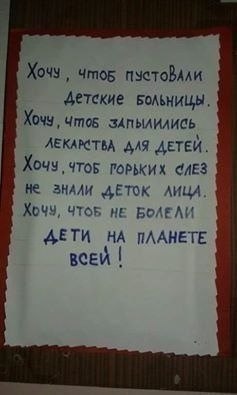 Хочу, чтоб пустовали
детские больницы.
Хочу, чтоб запылились
лекарства для детей.
Хочу, чтоб горьких слез
не знали деток лица.
Хочу, чтоб не болели
дети на планете
всей!